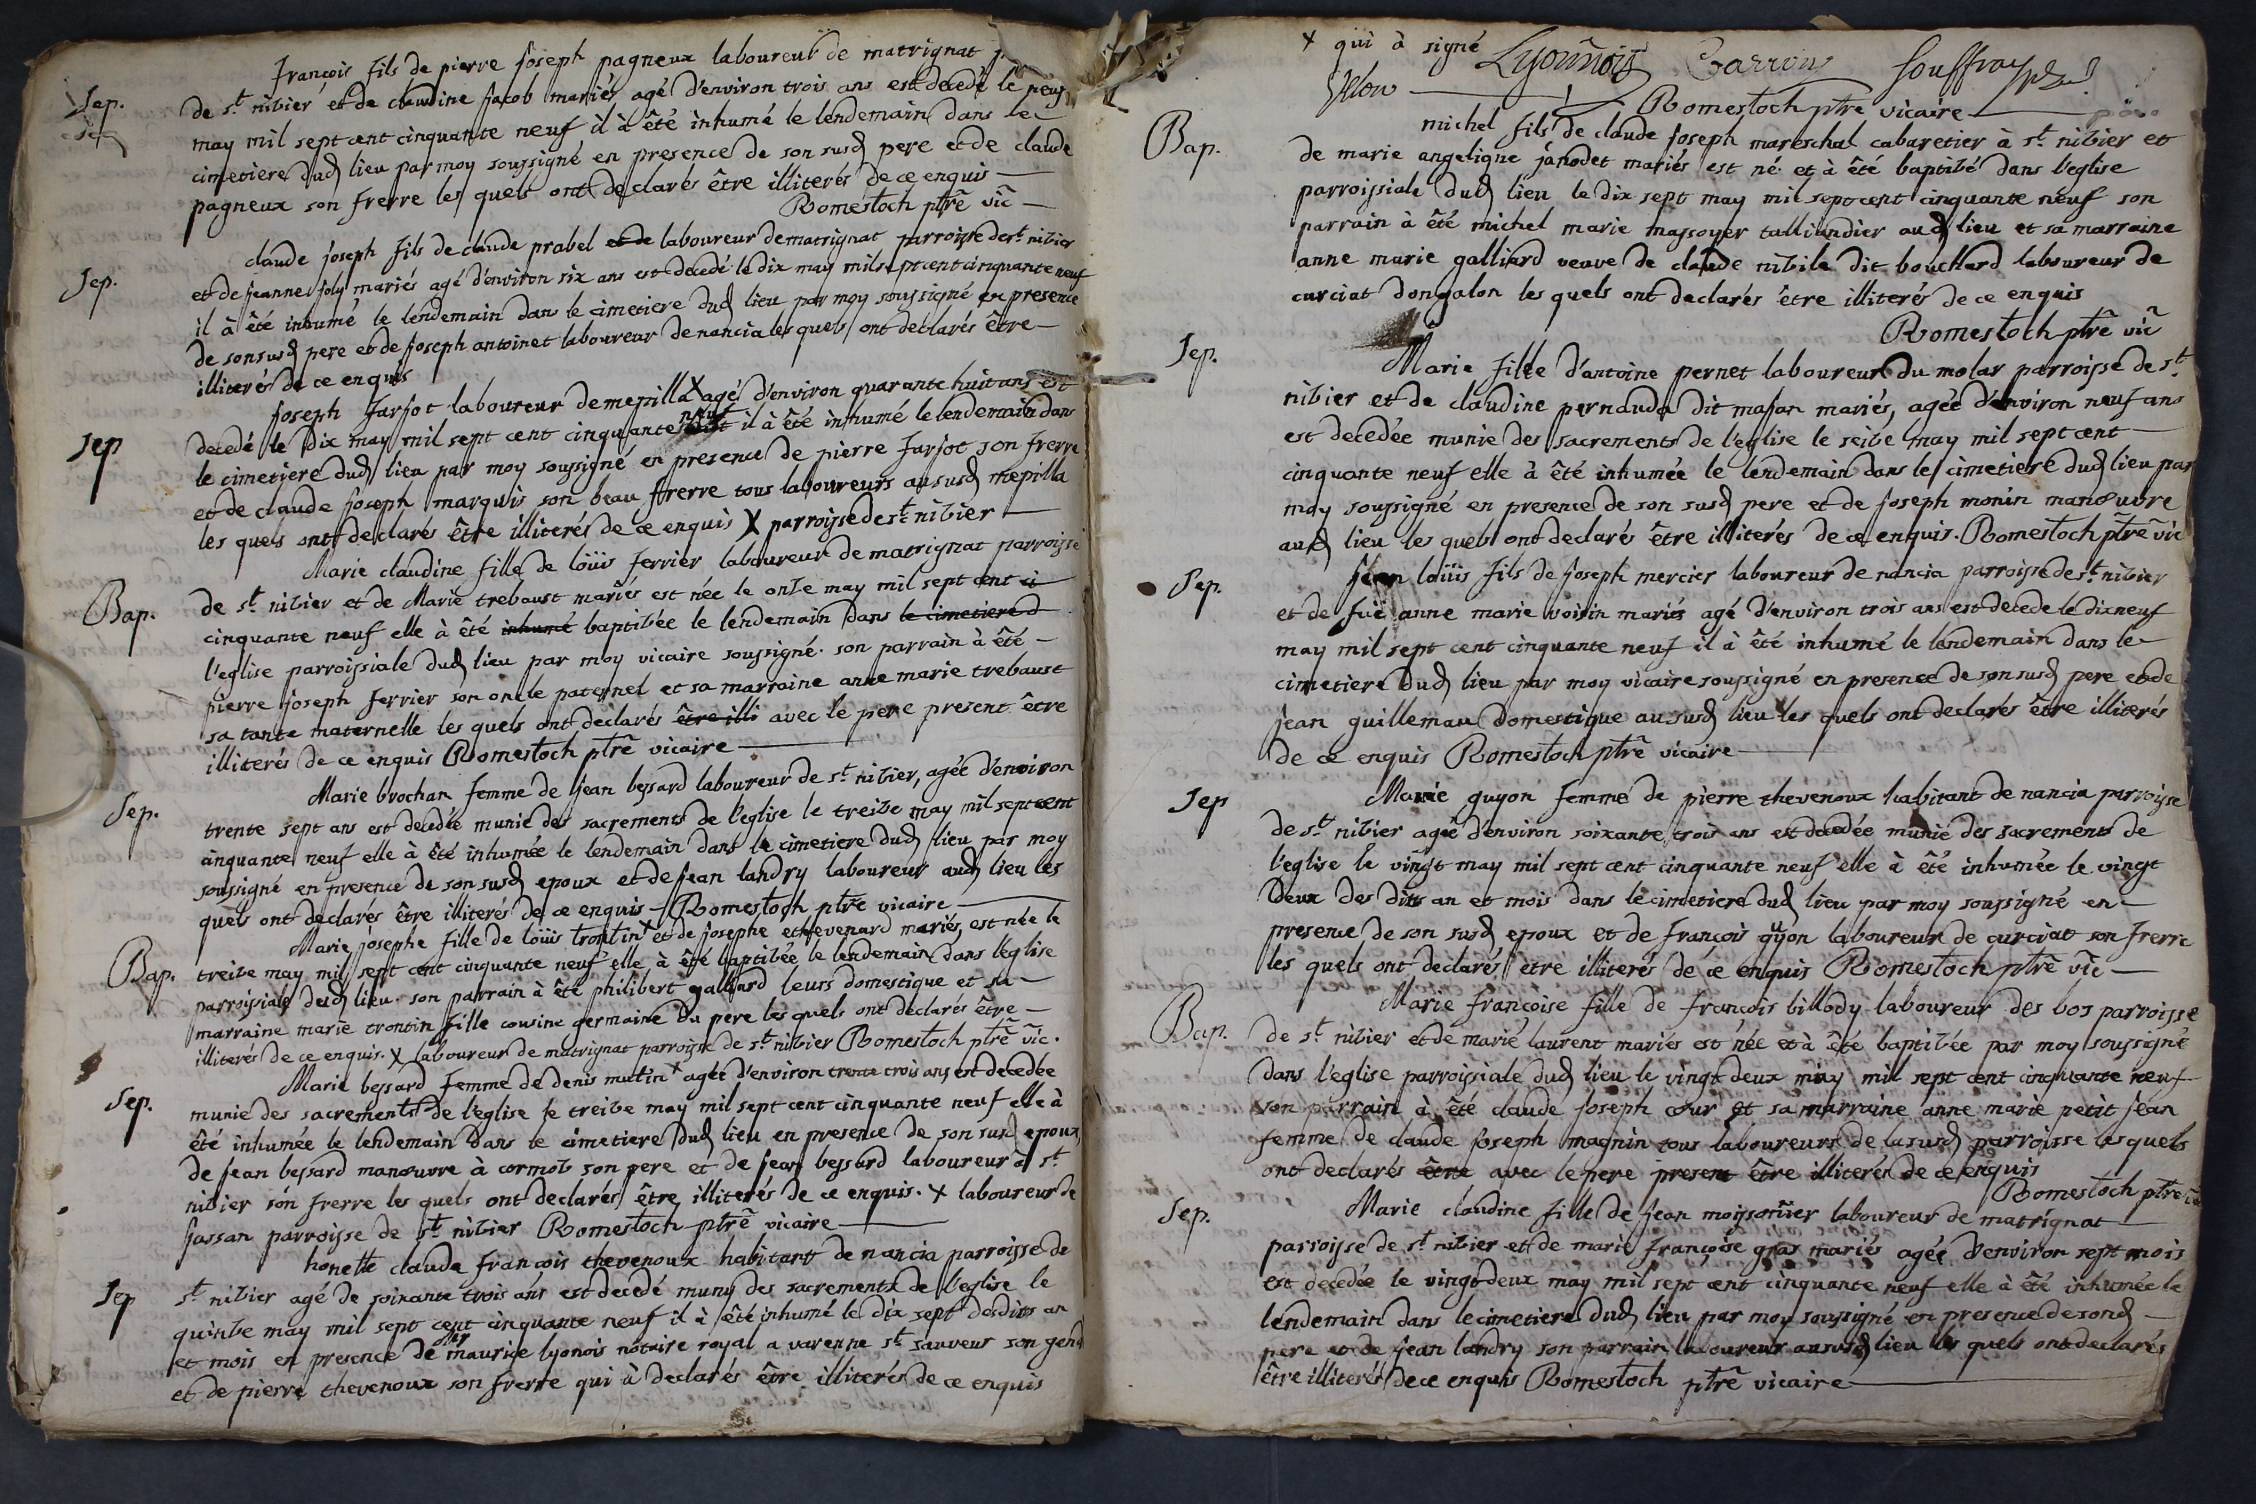 françois fils de pierre joseph pagneux laboureur de matrignat
Sep.
de st nizier et de claudine jacob mariés agé d'environ trois ans est decedé le neuf
may mil sept cent cinquante neuf il à été inhumé le lendemain dans le
cimetiere dud lieu par moy soussigné en presence de son susd pere et de claude
pagneux son frerre les quels ont declarés être illiterés de ce enquis
Romestoch ptre vic
claude joseph fils de claude prabel et de laboureur de matrignat parroisse de st nizier
Sep.
et de jeanne joly mariés agé d'environ six ans est decedé le dix may mil sept cent cinquante neuf
il à été inhumé le lendemain dans le cimetiere dud lieu par moy soussigné en presence
de son susd pere et de joseph antoinet laboureur de nancia les quels ont declarés être
illiterés de ce enquis
joseph farjot laboureur de mepilla X agé d'environ quarante huit ans est
Sep
decedé le dix may mil sept cent cinquante neuf il à été inhumé le lendemain dans
le cimetiere dud lieu par moy soussigné en presence de pierre farjot son frerre
et de claude joseph marquis son beau frerre tous laboureurs au susd mepilla
les quels ont declarés être illiterés de ce enquis X parroisse de st nizier
Marie claudine fille de loüis ferrier laboureur de matrignat parroisse
Bap.
de st nizier et de Marie trebaust mariés est née le onze may mil sept cent ci
cinquante neuf elle à été inhumé baptizée le lendemain dans le cimetiere d
l'eglise parroissiale dud lieu par moy vicaire soussigné. son parrain à été
pierre joseph ferrier son oncle paternel et sa marraine anne marie trebaust
sa tante maternelle les quels ont declarés être illi avec le pere present être
illiterés de ce enquis Romestoch ptre vicaire
Marie brochan femme de jean bessard laboureur de st nizier, agée d'environ
Sep.
trente sept ans est decedée munie des sacrements de l'eglise le treize may mil sept cent
cinquante neuf elle à été inhumée le lendemain dans le cimetiere dud lieu par moy
soussigné en presence de son susd epoux et de jean landry laboureur aud lieu les
quels ont declarés être illiterés de ce enquis Romestoch ptre vicaire
Marie josephe fille de loüis trontin X et de josephe ethevenard mariés, est née le
Bap.
treize may mil sept cent cinquante neuf elle à été baptizée le lendemain dans l'eglise
parroissiale dud lieu. son parrain à été philibert galliard leurs domestique et sa
marraine marie trontin fille cousine germaine du pere les quels ont declarés être
illiterés de ce enquis. X laboureur de matrignat parroisse de st nizier Romestoch ptre vic.
Marie bessard femme de denis mutin X agée d'environ trente trois ans est decedée
Sep.
munie des sacrements de l'eglise le treize may mil sept cent cinquante neuf elle à
été inhumée le lendemain dans le cimetiere dud lieu en presence de son susd epoux,
de jean bessard manœuvre à cormoz son pere et de jean bessard laboureur à st
nizier son frerre les quels ont declarés être illiterés de ce enquis. X laboureur de
jassan parroisse de st nizier Romestoch ptre vicaire
honette claude françois thevenoux habitant de nancia parroisse de
Sep
st nizier agé de soixante trois ans est decedé muny des sacrements de l'eglise le
quinze may mil sept cent cinquante neuf il à été inhumé le dix sept desdits an
et mois en presence de mr maurice lyonois notaire royal a varenne st sauveur son gend
et de pierre thevenoux son frerre qui à declarés être illiterés de ce enquis
X qui à signé Lyonnois Carron Souffray
Romestoch ptre vicaire
michel fils de claude joseph mareschal cabaretier à st nizier et
Bap.
de marie angelique janodet mariés est né et à été baptizé dans l'eglise
parroissiale dud lieu le dix sept may mil sept cent cinquante neuf son
parrain à été michel marie massoyer talliandier aud lieu et sa marraine
anne marie galliard veuve de claude nibile dit bouchard laboureur de
curciat dongalon les quels ont declarés être illiterés de ce enquis
Romestoch ptre vic
Sep.
Marie fille d'antoine pernet laboureur du molar parroisse de st
nizier et de claudine pernauda dit masan mariés, agée d'environ neuf ans
est decedée munie des sacrements de l'eglise le seize may mil sept cent
cinquante neuf elle à été inhumée le lendemain dans le cimetiere dud lieu par
moy soussigné en presence de son susd pere et de joseph monin manœuvre
aud lieu les quels ont declarés être illiterés de ce enquis. Romestoch ptre vic
Sep.
jean loüis fils de joseph mercier laboureur de nancia parroisse de st nizier
et de fuë anne marie voisin mariés agé d'environ trois ans est decede le dix neuf
may mil sept cent cinquante neuf il à été inhumé le lendemain dans le
cimetiere dud lieu par moy vicaire soussigné en presence de son susd pere et de
jean guillemau domestique au susd lieu les quels ont declarés être illiterés
de ce enquis Romestoch ptre vicaire
Sep
Marie guyon femme de pierre thevenoux habitant de nancia parroisse
de st nizier agée d'environ soixante trois ans est decedée munie des sacrements de
l'eglise le vingt may mil sept cent cinquante neuf elle à été inhumée le vingt
deux des dits an et mois dans le cimetiere dud lieu par moy soussigné en
presence de son susd epoux et de françois guyon laboureur de curciat son frerre
les quels ont declarés être illiterés de ce enquis Romestoch ptre vic
Marie françoise fille de françois billody laboureur des bos parroisse
Bap.
de st nizier et de marie laurent mariés est née et à été baptizée par moy soussigné
dans l'eglise parroissiale dud lieu le vingt deux may mil sept cent cinquante neuf
son parrain à été claude joseph cour et sa marraine anne marie petit jean
femme de claude joseph magnin tous laboureurs de la susd parroisse les quels
ont declarés être avec le pere present être illiterés de ce enquis
Romestoch ptre vic
Sep.
Marie claudine fille de jean moissonnier laboureur de matrignat
parroisse de st nizier et de marie françoise gras mariés agée d'environ sept mois
est decedée le vingt deux may mil sept cent cinquante neuf elle à été inhumée le
lendemain dans le cimetiere dud lieu par moy soussigné en presence de sond
pere et de jean landry son parrain laboureur au susd lieu les quels ont declarés
être illiterés de ce enquis Romestoch ptre vicaire